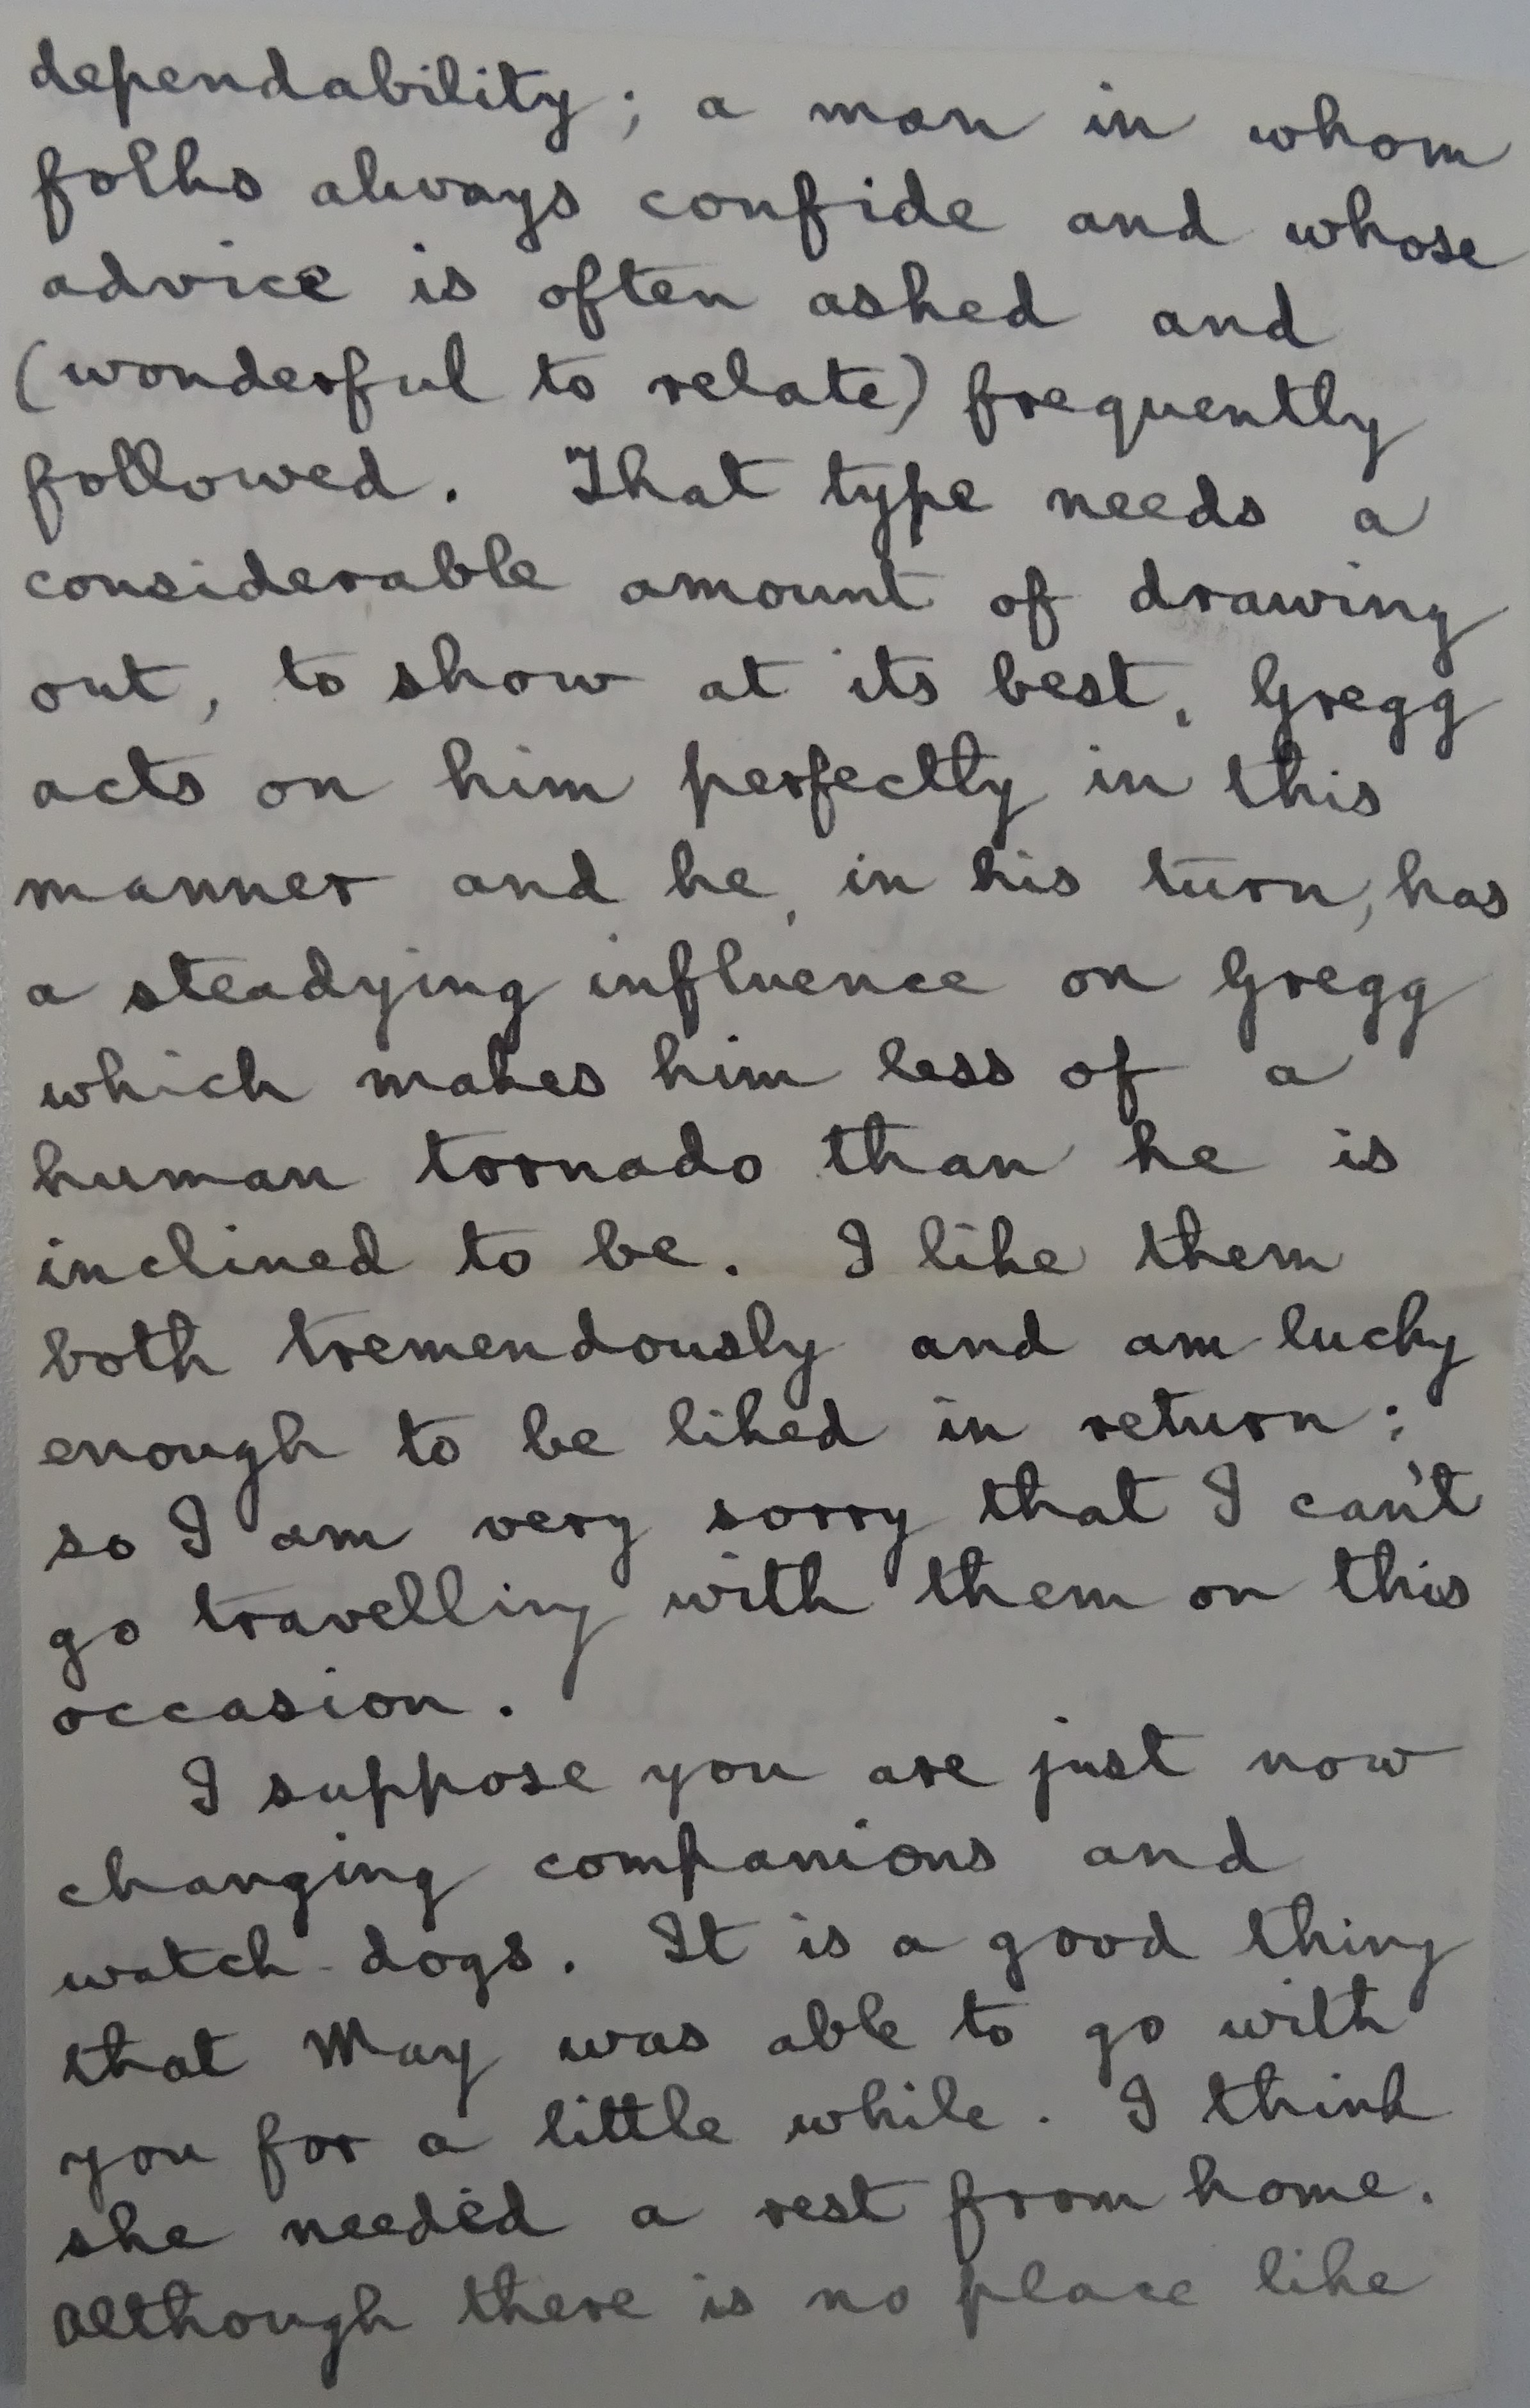 dependability; a man in whom
folks always confide and whose
advice is often asked and
(wonderful to relate) frequently
followed. That type needs a
considerable amount of drawing
out, to show at its best. Gregg
acts on him perfectly in this
manner and he, in his turn, has
a steadying influence on Gregg
which makes him less of a
human tornado than he is
inclined to be. I like them
both tremendously and am lucky
enough to be liked in return;
so I am very sorry that I can't
go travelling with them on this
occasion.
I suppose you are just now
changing companions and
watch-dogs. It is a good thing
that May was able to go with
you for a little while. I think
she needed a rest from home.
Although there is no place like